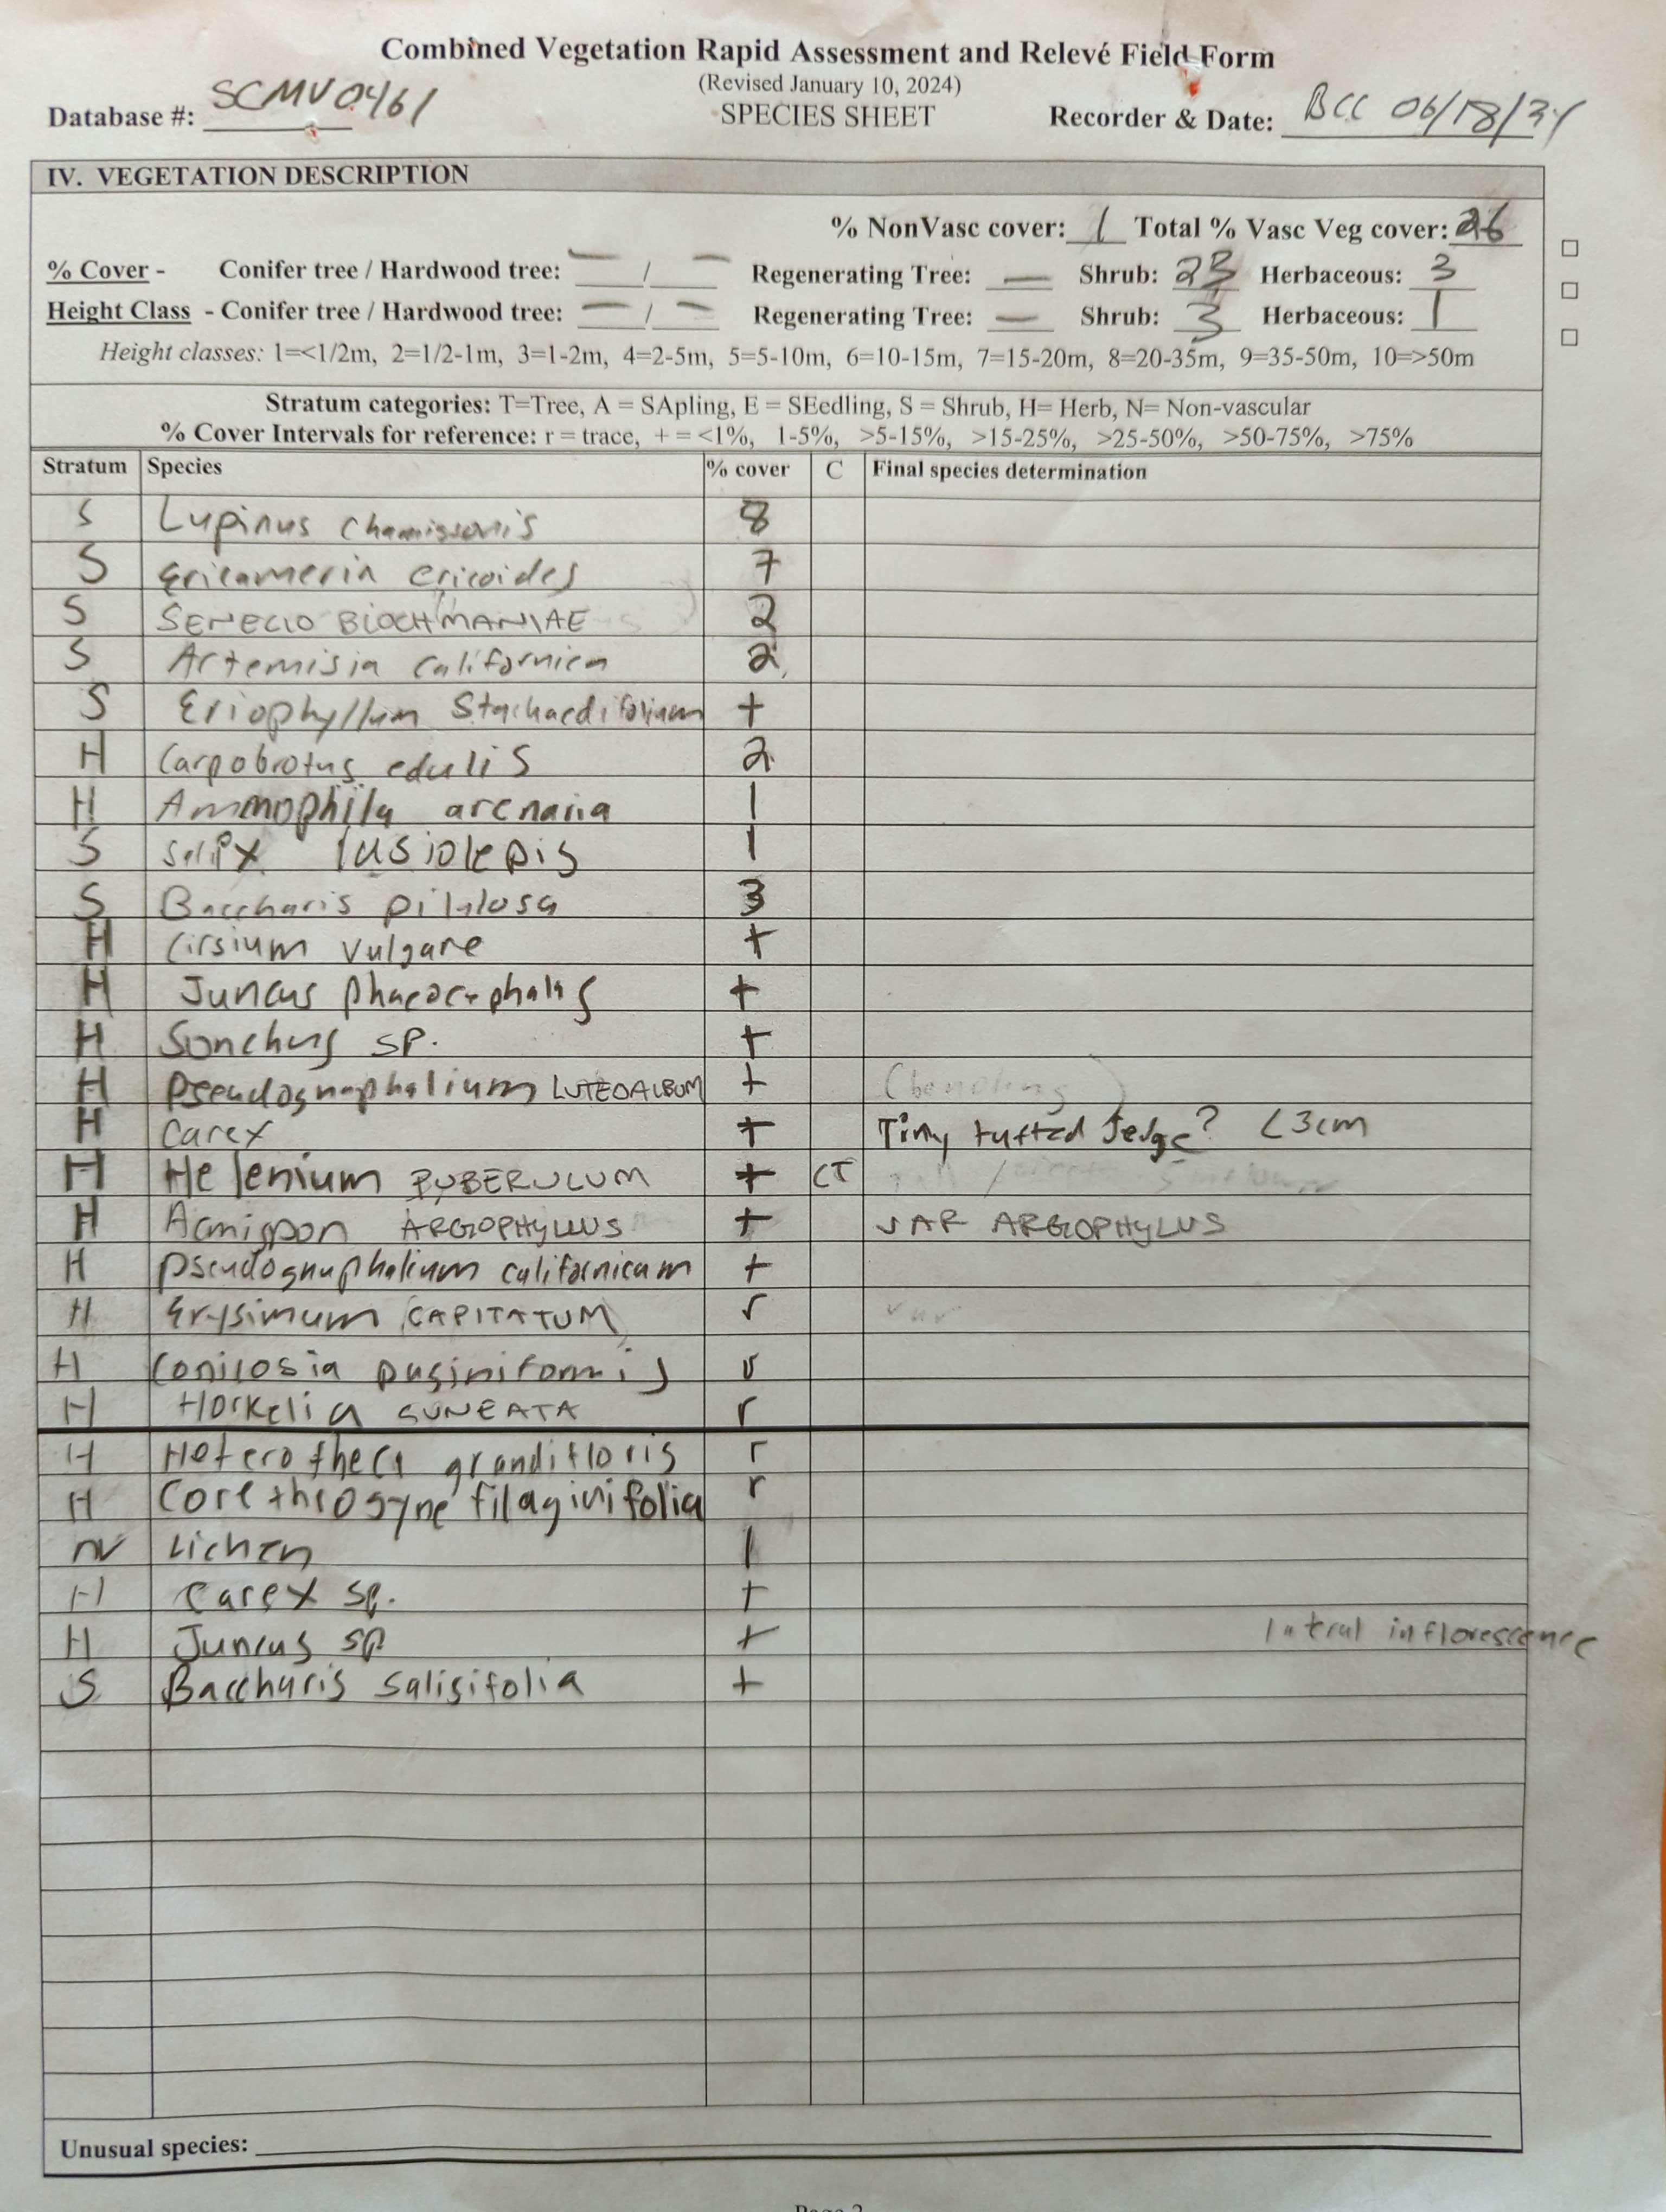 Combined Vegetation Rapid Assessment and Relevé Field Form
(Revised January 10, 2024)
Database #: SCMV0461 SPECIES SHEET Recorder & Date: BCC 06/18/24
IV. VEGETATION DESCRIPTION
% NonVasc cover: 1 Total % Vasc Veg cover: 26
% Cover - Conifer tree / Hardwood tree: — / — Regenerating Tree: — Shrub: 23 Herbaceous: 3
Height Class - Conifer tree / Hardwood tree: — / — Regenerating Tree: — Shrub: 3 Herbaceous: 1
Height classes: 1=<1/2m, 2=1/2-1m, 3=1-2m, 4=2-5m, 5=5-10m, 6=10-15m, 7=15-20m, 8=20-35m, 9=35-50m, 10=>50m
Stratum categories: T=Tree, A = SApling, E = SEedling, S = Shrub, H= Herb, N= Non-vascular
% Cover Intervals for reference: r = trace, + = <1%, 1-5%, >5-15%, >15-25%, >25-50%, >50-75%, >75%
Stratum Species % cover C Final species determination
S Lupinus Chamissonis 8
S Ericameria ericoides 7
S SENECIO BLOCHMANIAE 2
S Artemisia californica 2
S Eriophyllum Stachaedifolium +
H Carpobrotus edulis 2
H Ammophila arenaria 1
S Salix lasiolepis 1
S Baccharis pilulosa 3
H Cirsium vulgare +
H Juncus phaeocephalus +
H Sonchus sp. +
H Pseudognaphalium LUTEOALBUM +
H Carex + Tiny tufted sedge? <3cm
H Helenium PUBERULUM + CT
H Acmispon ARGOPHYLLUS + VAR ARGOPHYLUS
H Pseudognaphalium californicum +
H Erysimum CAPITATUM r var
H Conicosia pugioniformis r
H Horkelia CUNEATA r
H Heterotheca grandifloris r
H Corethrogyne filaginifolia r
NV Lichen 1
H Carex sp. +
H Juncus sp + latral inflorescence
S Baccharis salisifolia +
Unusual species: